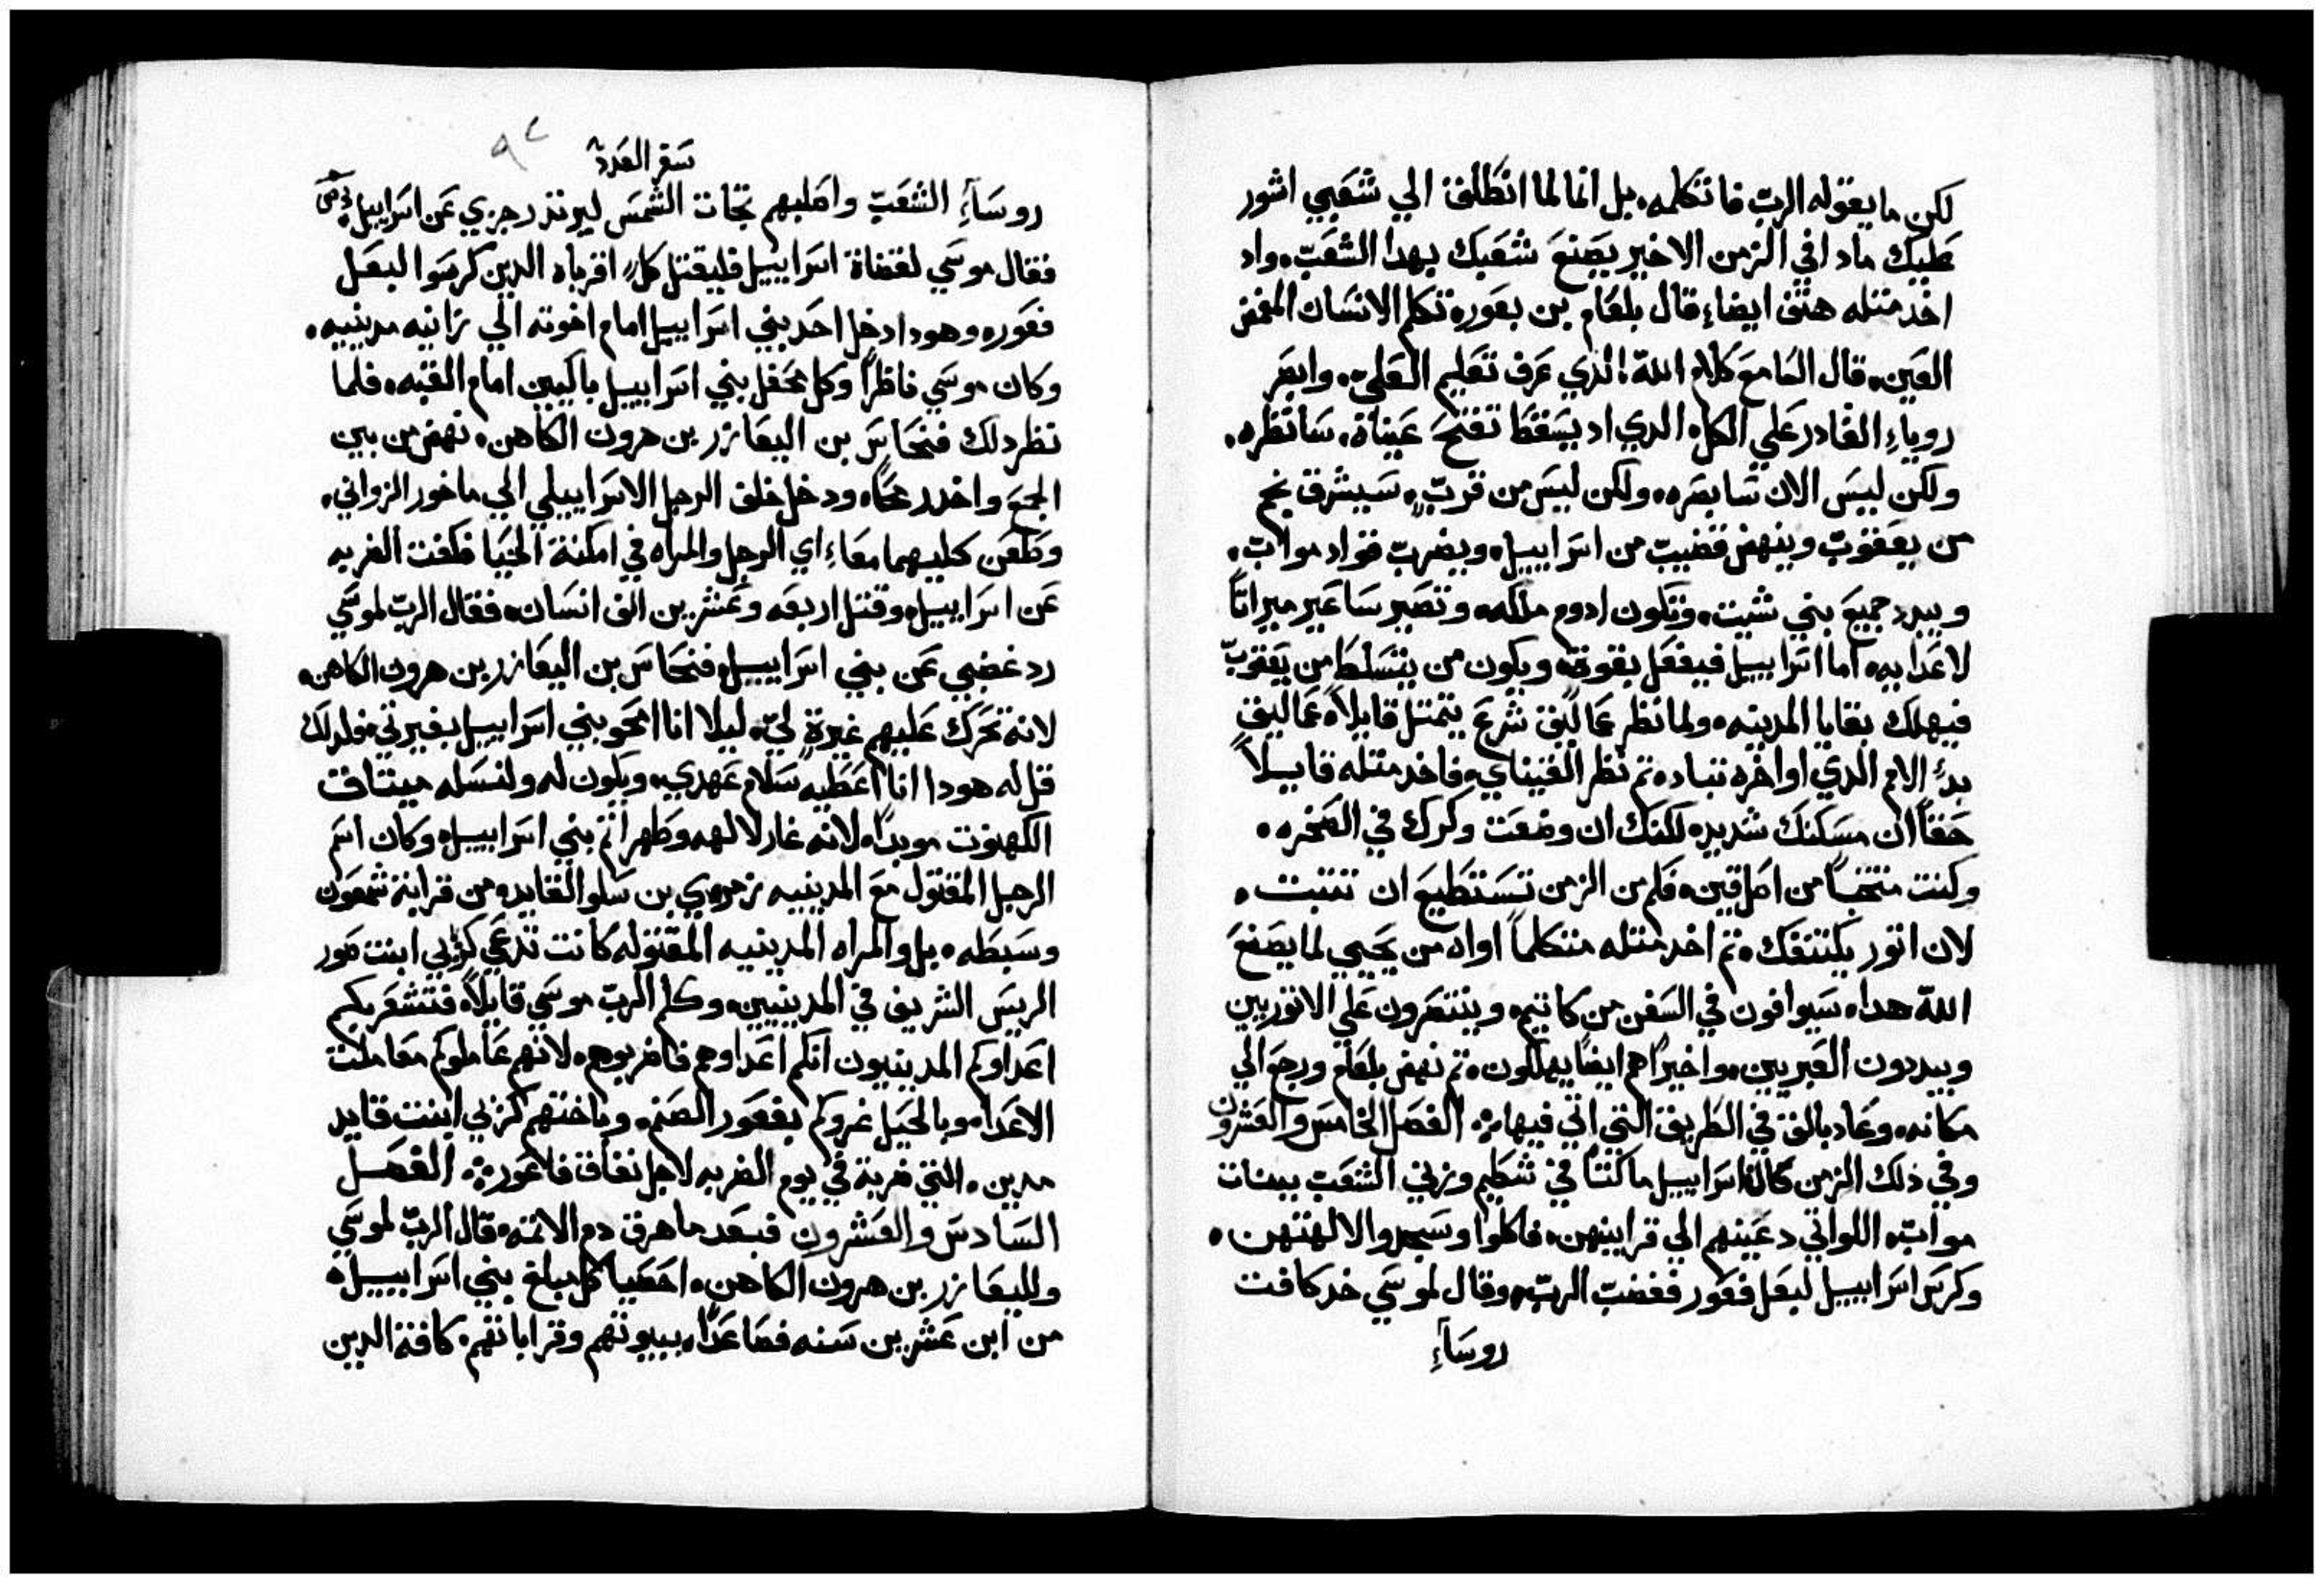 لكن ما يقوله الرب فاتكلمه. بل انا لما انطلق الي شعبي اشور
عليك مادا في الزمن الاخير يصنع شعبك بهدا الشعب. واد
اخد متله هتف ايضا، قال بلعام بن بعور، تكلم الانسان المغمض
العين. قال السامع كلام الله الذي عرف تعليم العلي. وابصر
روياء القادر علي الكل، الدي اد يسقط تفتح عيناة. سانظره.
ولكن ليس الان سابصره، ولكن ليس من قرب، سيشرق نجم
من يعقوب وينهض قضيب من اسراييل، ويضرب قواد مواب،
ويبدد جميع بني شيت. وتكون ادوم ملكه. وتصير ساعير ميراتاً
لاعدايه. اما اسراييل فيفعل بقوة، ويكون من يتسلط من يعقوب
فيهلك بقايا المدينه. ولما نظر عماليق شرع يتمتل قايلاً، عماليق
بدء الامم الدي اواخره تباد. تم نظر القيناي. فاخد متله قايلاً
حقاً ان مسكنك شديد، لكنك ان وضعت وكرك في الصخره.
وكنت منتخباً من اصل قين، فلم من الزمن تستطيع ان تتبت.
لان اتور يكتنفك. تم اخد متله متكلماً اواه من يحيي لما يصنع
الله هدا، سيوافون في السفن من كاتيم، وينتصرون علي الاتوريين
ويبددون العبريين. واخيراً هم ايضاً يهلكون. تم نهض بلعام ورجع الي
مكانه. وعاد بالق في الطريق التي اتي فيها. الفصل الخامس والعشرون
وفي ذلك الزمن كان اسراييل ماكتاً في شطيم وزني الشعب ببنات
مواب، اللواتي دعينهم الي قرابينهن، فاكلوا وسجدوا لالهتهن.
وكرس اسراييل لبعل فعور فغضب الرب، وقال لموسي خد كافت
روساَءِ
سفر العدد
روساَءِ الشعب واصلبهم تجات الشمس ليرتد رجزي عن اسراييل
فقال موسي لقضاة اسراييل فليقتل كل اقرباه الدين كرسوا لبعل
فعور، وهودا دخل احد بني اسراييل امام اخوته الي زانيه مدينيه.
وكان موسي ناظراً وكل محفل بني اسراييل باكيين امام القبه. فلما
نظر دلك فنحاس بن اليعازر بن هرون الكاهن. نهض من بين
الجمع واخد رمحاً، ودخل خلف الرجل الاسراييلي الي ماخور الزواني.
وطعن كليهما معاً، اي الرجل والمراه في امكنة الحيا فكفت الضربه
عن اسراييل، وقتل اربعه وعشرين الف انسان. فقال الرب لموسي
رد غضبي عن بني اسراييل، فنحاس بن اليعازر بن هرون الكاهن.
لانه تحرك عليهم غيرةٍ لي، ليلا انا امحو بني اسراييل بغيرتي. فلدلك
قل له هودا انا اعطيه سلام عهدي. ويكون له ولنسله ميتاق
الكهنوت موبداً، لانه غار لالهه وطهر اتم بني اسراييل، وكان اسم
الرجل المقتول مع المدينيه زمري بن سلو القايد من قرابة شمعون
وسبطه. بل والمراه المدينيه المقتوله كانت تدعي كزبي ابنت صور
الريس الشريف في المدينيين. وكلم الرب موسي قايلاً، فتشعر بكم
اعداوكم المدينيون انكم اعداوهم فاضربوهم. لانهم عاملوكم معاملت
الاعداء وبالحيل غروكم بفعور الصنم. وباختهم كزبي ابنت قايد
مدين. التي ضربة في يوم الضربه لاجل نفاق فاعور. الفصل
السادس والعشرون فبعد ما هرق دم الاتمه. قال الرب لموسي
ولليعازر بن هرون الكاهن. احصيا كل مبلغ بني اسراييل،
من ابن عشرين سنه فصاعداً، ببيوتهم وقراباتهم. كافة الدين